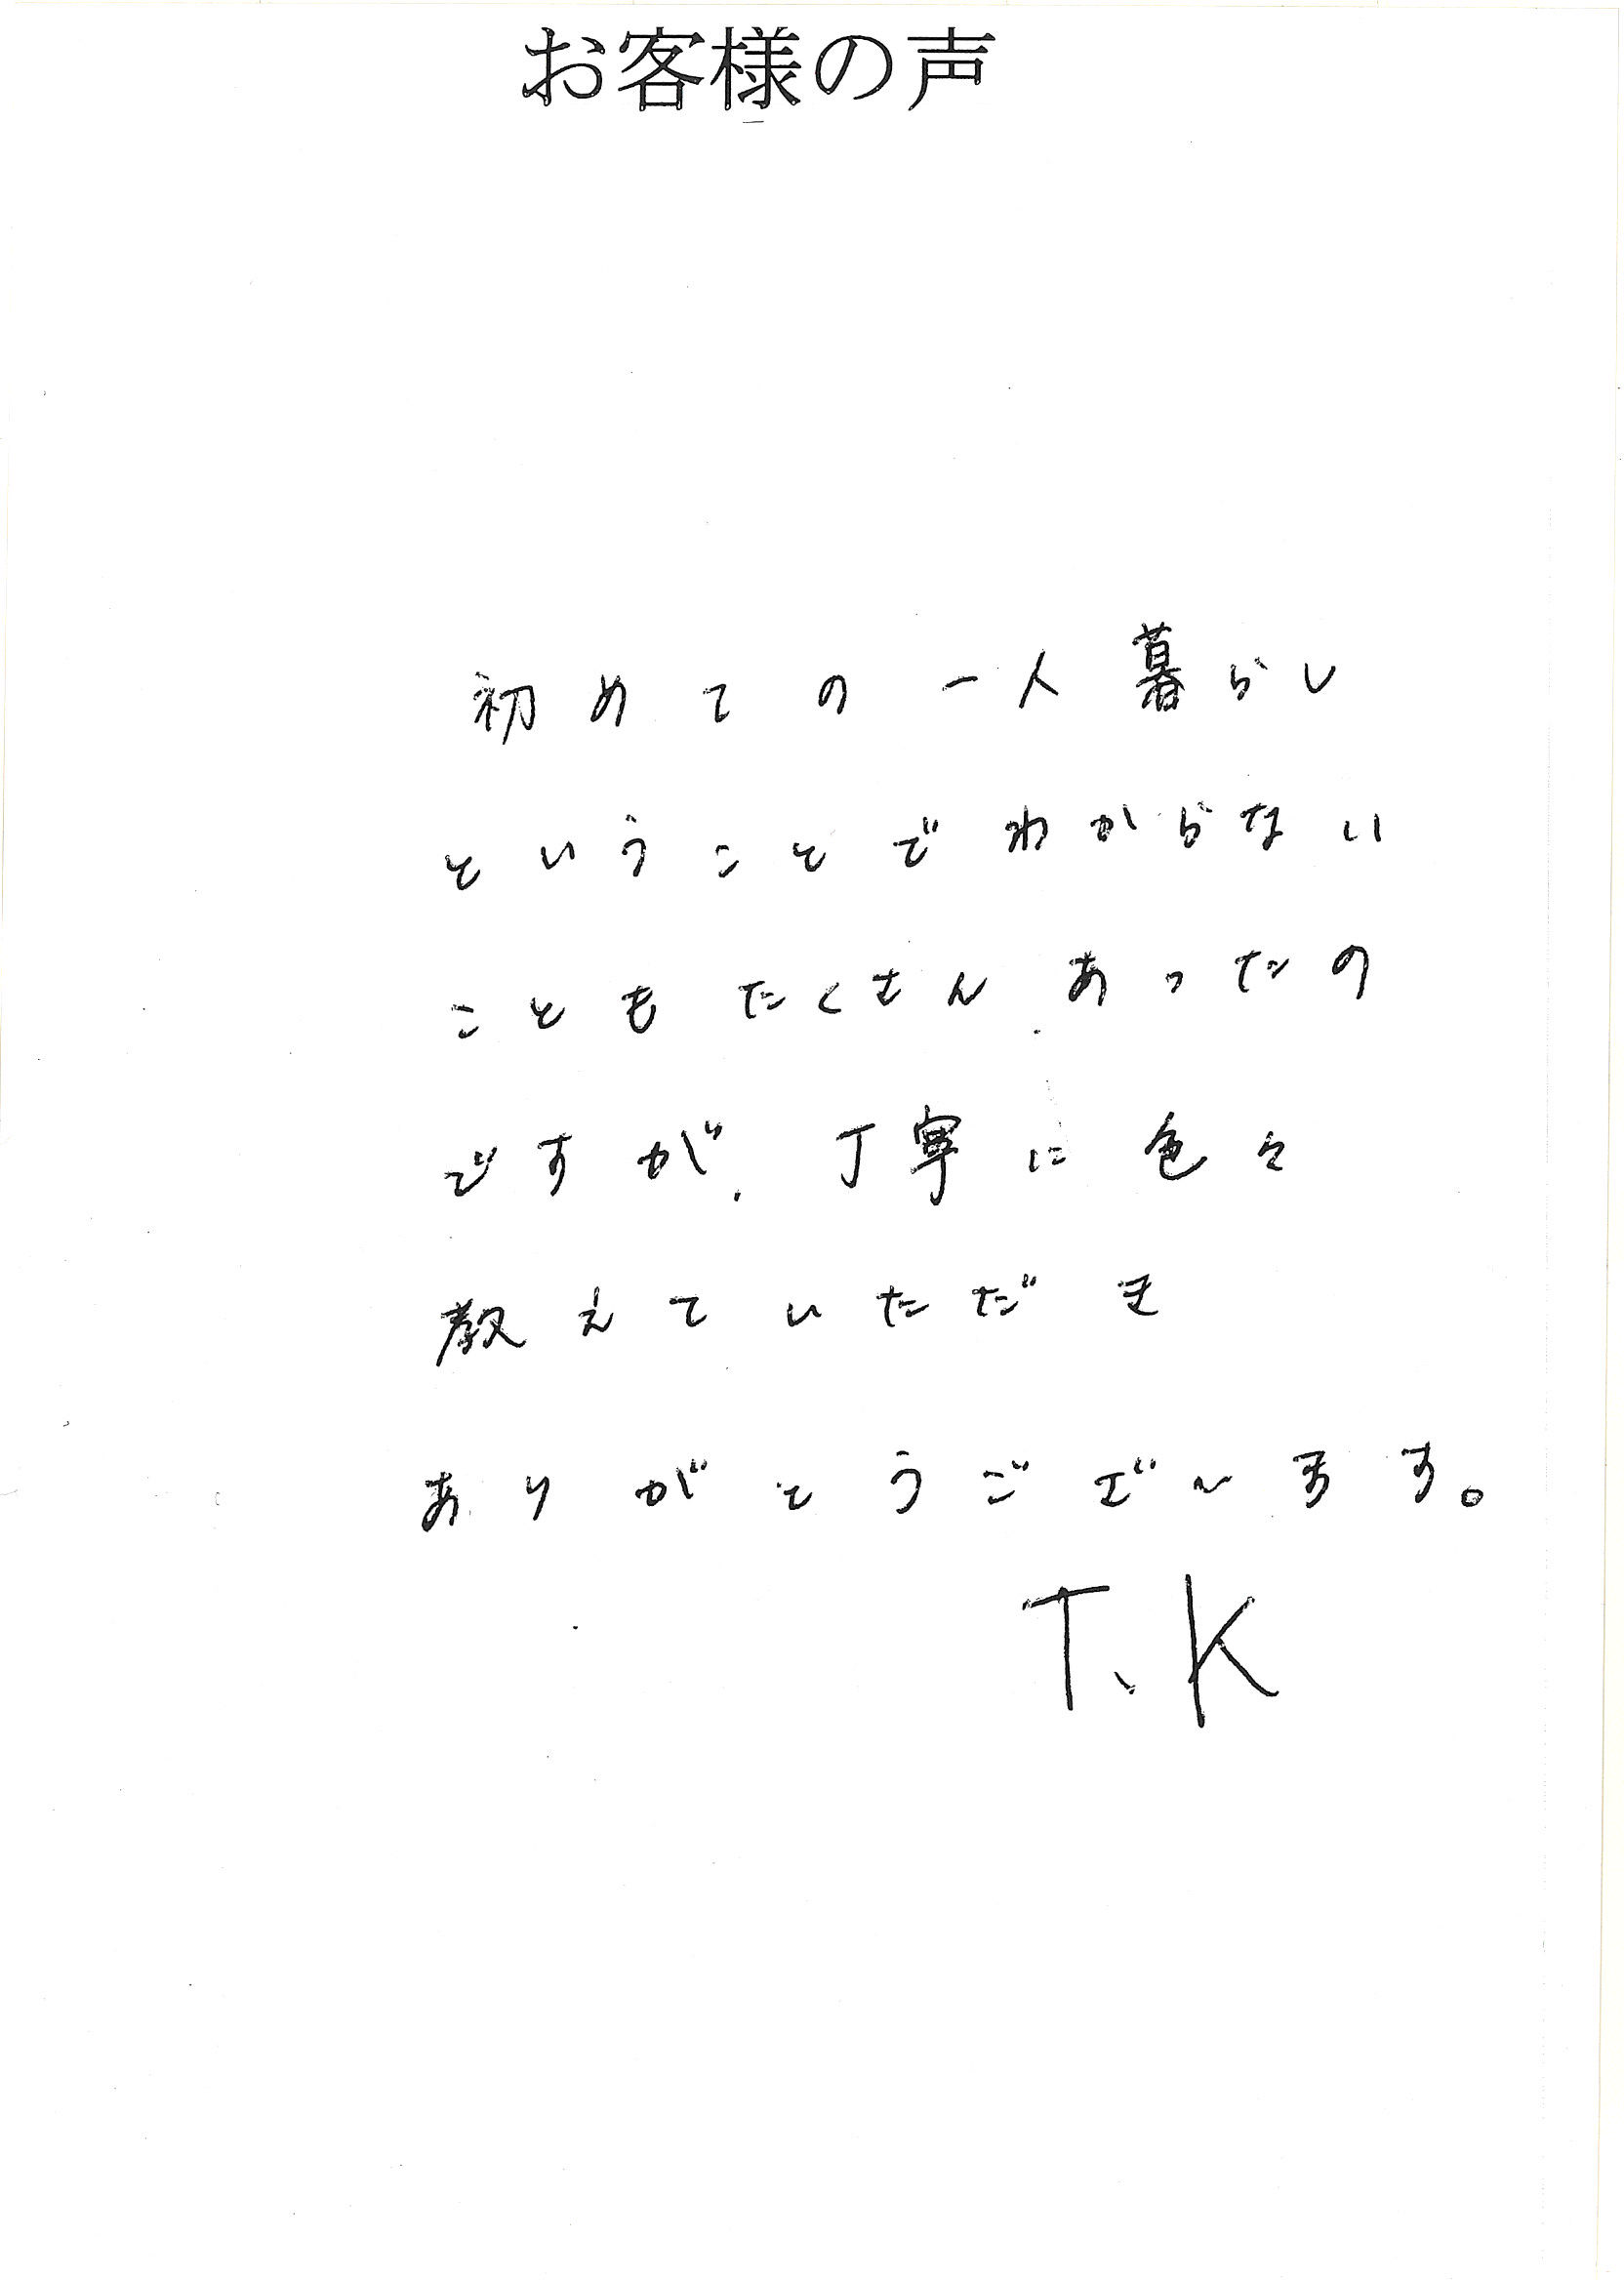 お客様の声
初めての一人暮らし
ということでわからない
こともたくさんあったの
ですが、丁寧に色々
教えていただき
ありがとうございます。
T.K